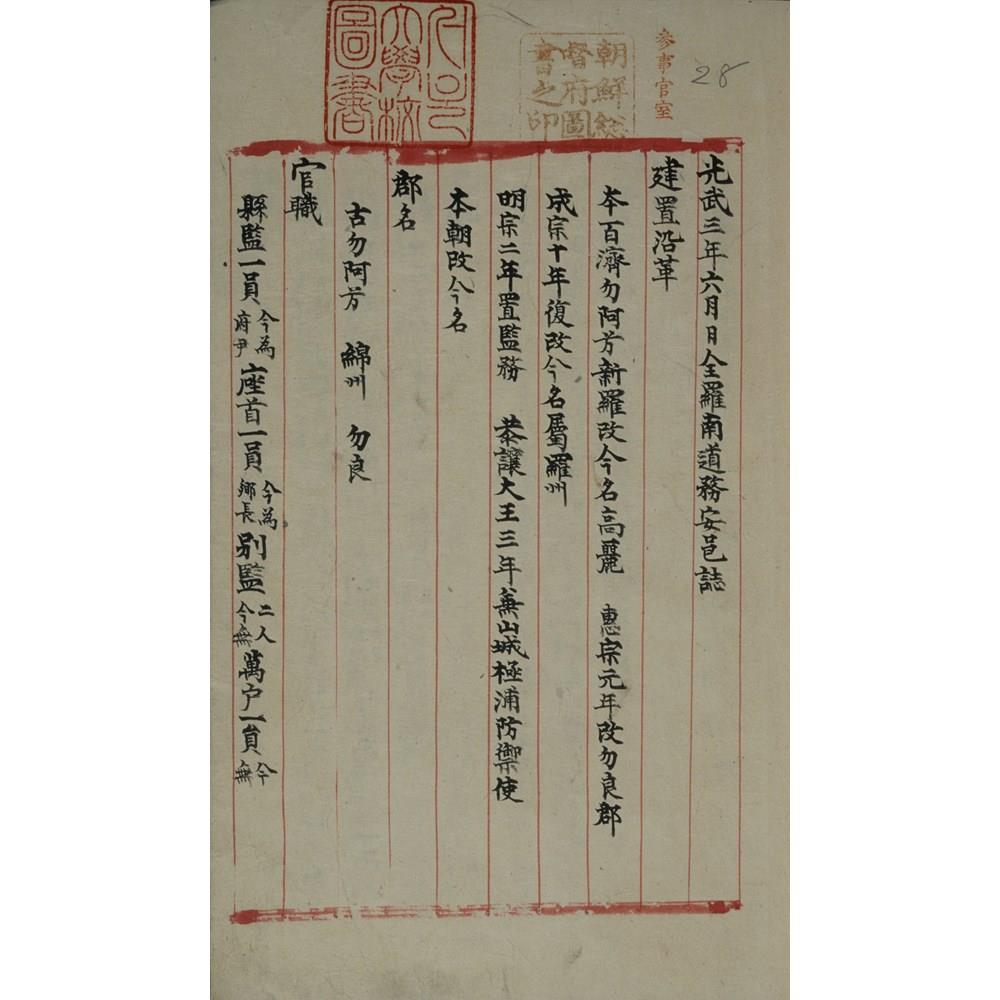 28
參事官室
朝鮮総
督府圖
書之印
大學校
圖書
光武三年六月日全羅南道務安邑誌
建置沿革
本百濟勿阿兮新羅改今名高麗 惠宗元年改勿良郡
成宗十年復改今名屬羅州
明宗二年置監務 恭讓大王三年兼山城極浦防禦使
本朝改今名
郡名
古勿阿兮 綿州 勿良
官職
縣監一員 今為府尹 座首一員 今為鄉長 別監 二人今無 萬户一員 今無